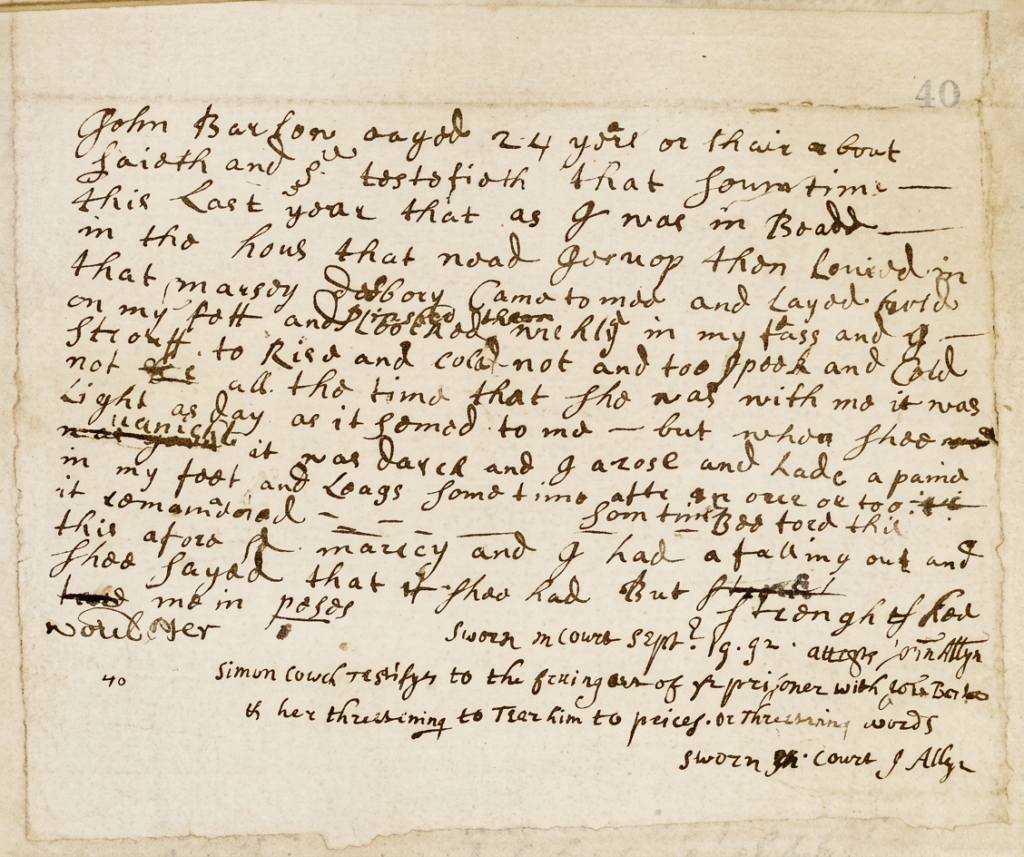 40
John Barlow aaged 24 years or thair about
saieth and sd testefieth that soumtime
this Last year that as I was in Beadd
in the hous that nead Jesuop then Louied in
that marsey disbory Came to mee and Layed hold
on my fett and pinshed them
Loocked wichly in my fass and I
strouff to Rise and cold not and too speek and Cold
not all the time that she was with me it was
Light as day as it semed to me – but when shee
uanicht
it was darck and I arose and hade a paine
in my feet and Leags some time afte an ouer or too
it remandered
som tim Bee fore this
this afore sd marecy and I had a falling out and
shee sayed that if shee had But
strenght shee
me in peses
woulld ter
sworn in Court Septr 19. 92. attests John Allyn
40
Simon Couch testifys to the falling out of ye prisoner with John Barlow
& her threatning to Tear him to peices. or Threatning words
sworn in Court J Allyn